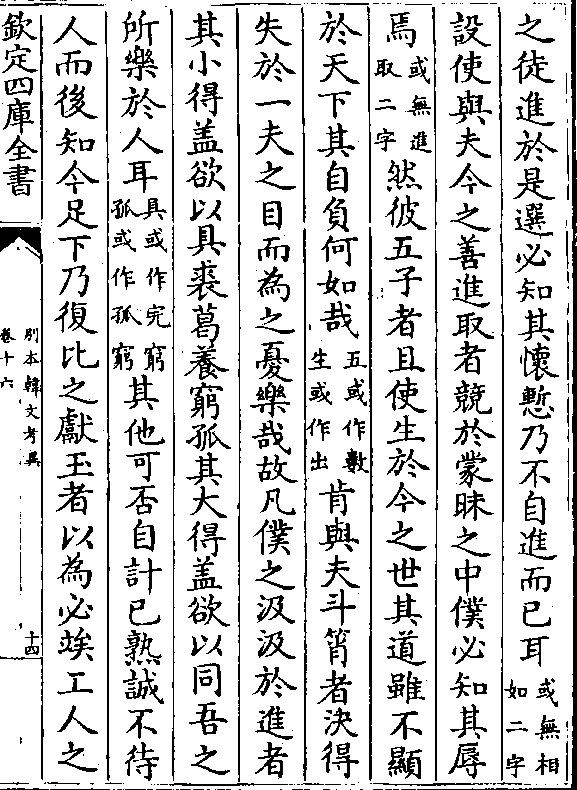 之徒進於是選必知其懷慙乃不自進而已耳或無相如二字
設使與夫今之善進取者競於蒙昧之中僕必知其辱
焉或無進取二字然彼五子者且使生於今之世其道雖不顯
於天下其自負何如哉五或作數生或作出肯與夫斗筲者決得
失於一夫之目而為之憂樂哉故凡僕之汲汲於進者
其小得盖欲以具裘葛養窮孤其大得盖欲以同吾之
所樂於人耳具或作完窮孤或作孤窮其他可否自計已熟誠不待
人而後知今足下乃復比之獻玉者以為必竢工人之
欽定四庫全書
別本韓文考異
卷十六
十四